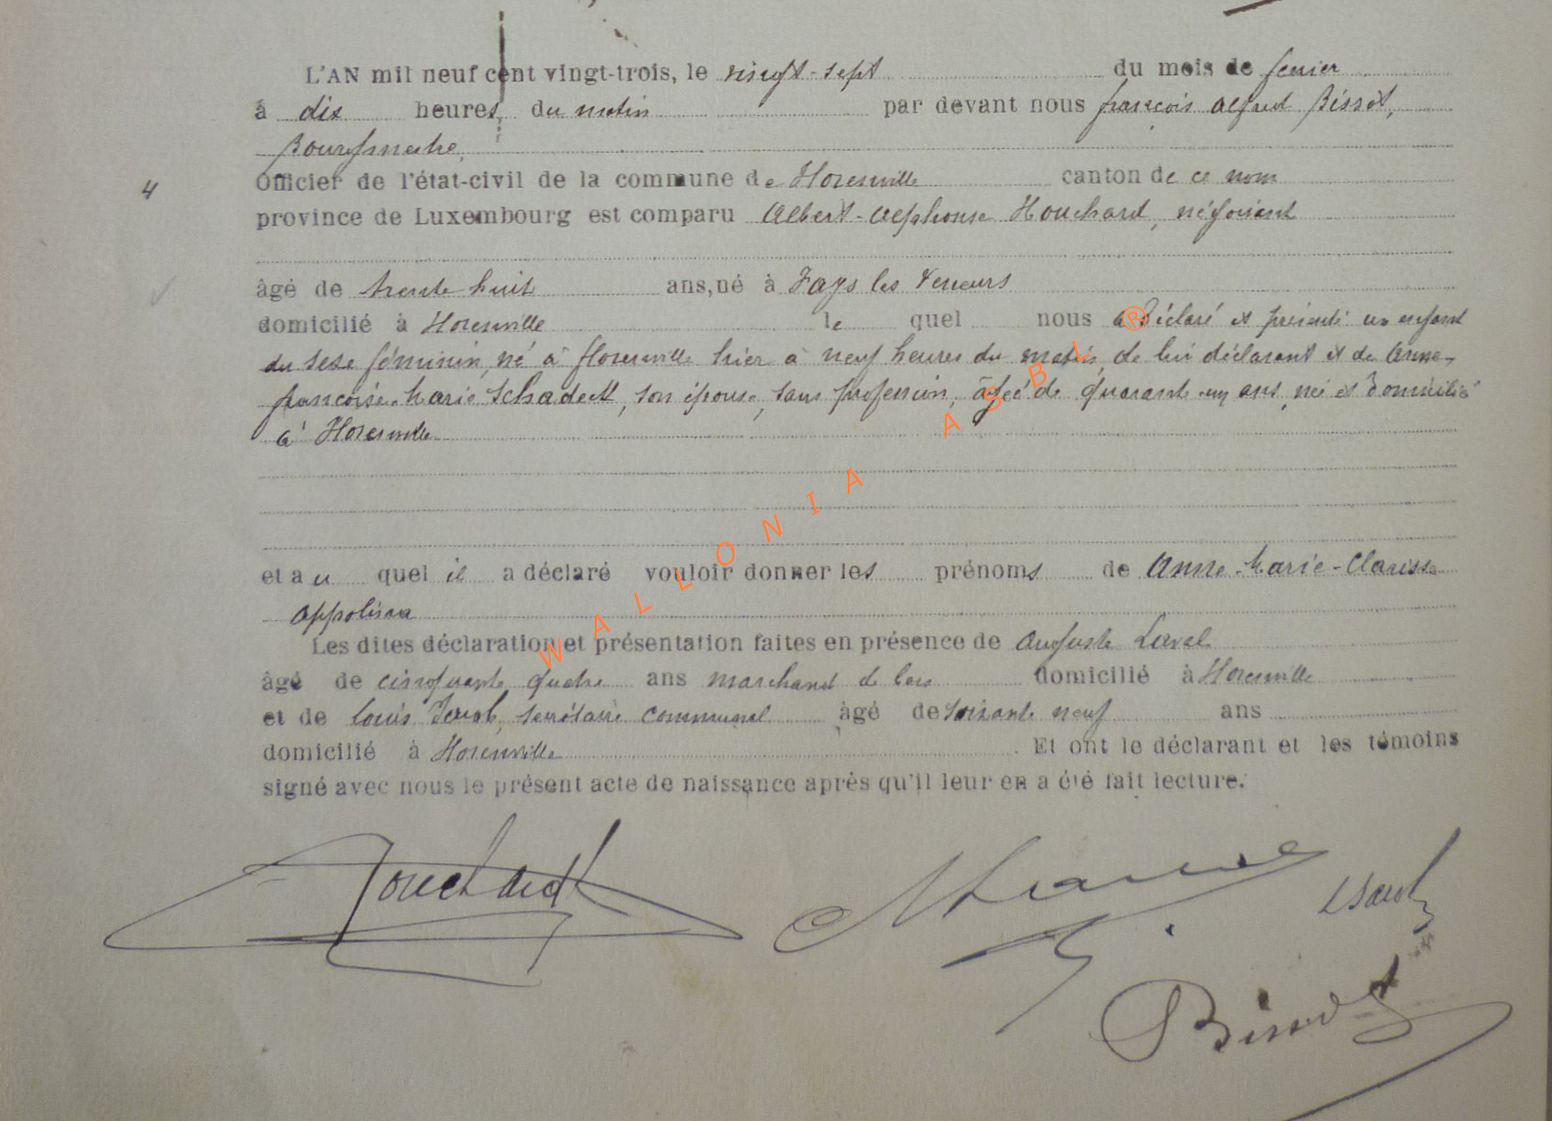 L'AN mil neuf cent vingt-trois, le vingt-sept du mois de fevrier
à dix heures du matin par devant nous françois Alfred Bissot,
Bourgmestre,
Officier de l'état-civil de la commune de Florenville canton de ce nom
4
province de Luxembourg est comparu Albert-Alphonse Houchard, négociant
âgé de trente huit ans, né à Fays les Veneurs
domicilié à Florenville le quel nous a déclaré et présenté un enfant
du sexe féminin, né à florenville hier à neuf heures du matin, de lui déclarant et de Anne-
françoise-Marie Schadeck, son épouse, sans profession, âgée de quarante-un ans, née et domiciliée
à Florenville
et au quel il a déclaré vouloir donner les prénoms de Anne-Marie-Clarisse
Appolina
Les dites déclaration et présentation faites en présence de Auguste
âgé de cinquante quatre ans marchand de bois domicilié à Florenville
et de Louis Jacob, secrétaire communal âgé de soixante neuf ans
domicilié à Florenville. Et ont le déclarant et les témoins
signé avec nous le présent acte de naissance après qu'il leur en a été fait lecture.
WALLONIA ASBL ®
Houchard
Bissot